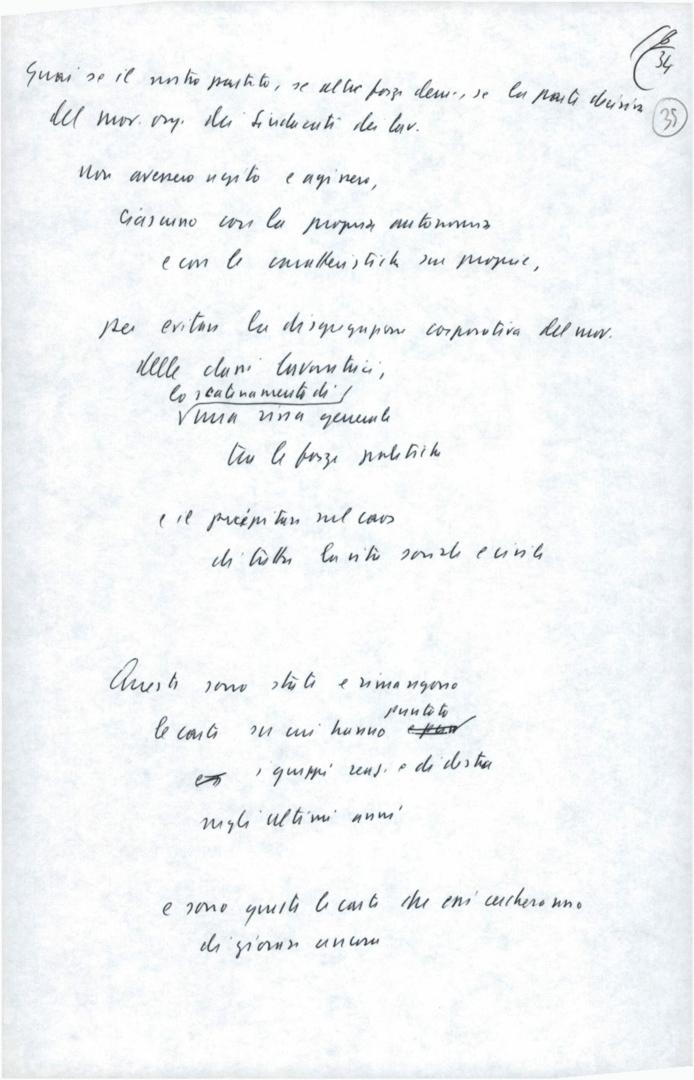 B/34
35
Guai se il nostro partito, se altre forze dem., se la parte decisiva
del mov. org. dei sindacati dei lav.
non avessero agito e agissero,
ciascuno con la propria autonomia
e con le caratteristiche sue proprie,
per evitare la disgregazione corporativa del mov.
delle classi lavoratrici,
lo scatenamento di
una rissa generale
tra le forze politiche
e il precipitare nel caos
di tutta la vita sociale e civile
Queste sono state e rimangono
le carte su cui hanno puntato
i gruppi reaz. e di destra
negli ultimi anni
e sono queste le carte che essi cercheranno
di giocare ancora